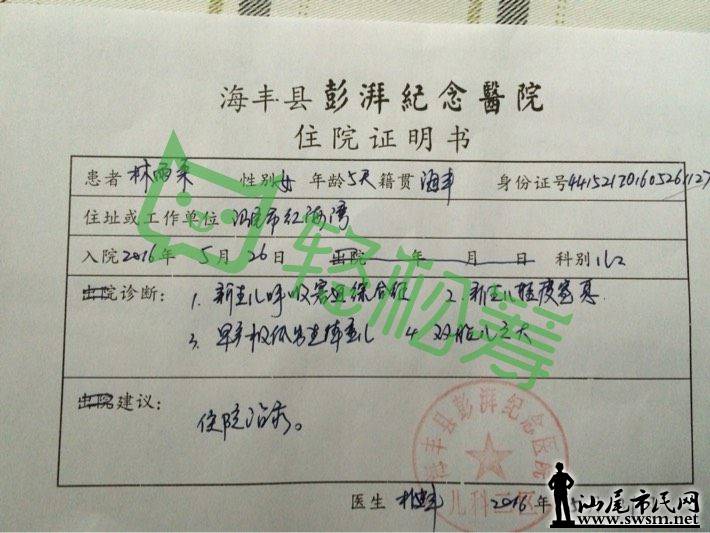 海丰县彭湃纪念醫院
住院证明书
患者 林雨柔 性别 女 年龄 5天 籍贯 海丰 身份证号
住址或工作单位 汕尾市红海湾
入院 2016年 5月 26日 出院 年 月 日 科别 儿
出院诊断: 1. 新生儿呼吸窘迫综合征 2. 新生儿轻度窒息
3. 早产极低出生体重儿 4. 双胎儿之大
出院建议:
住院治疗。
医生 2016年
海丰县彭湃纪念医院
儿科二区
轻松筹
汕尾市民网
www.swsm.net